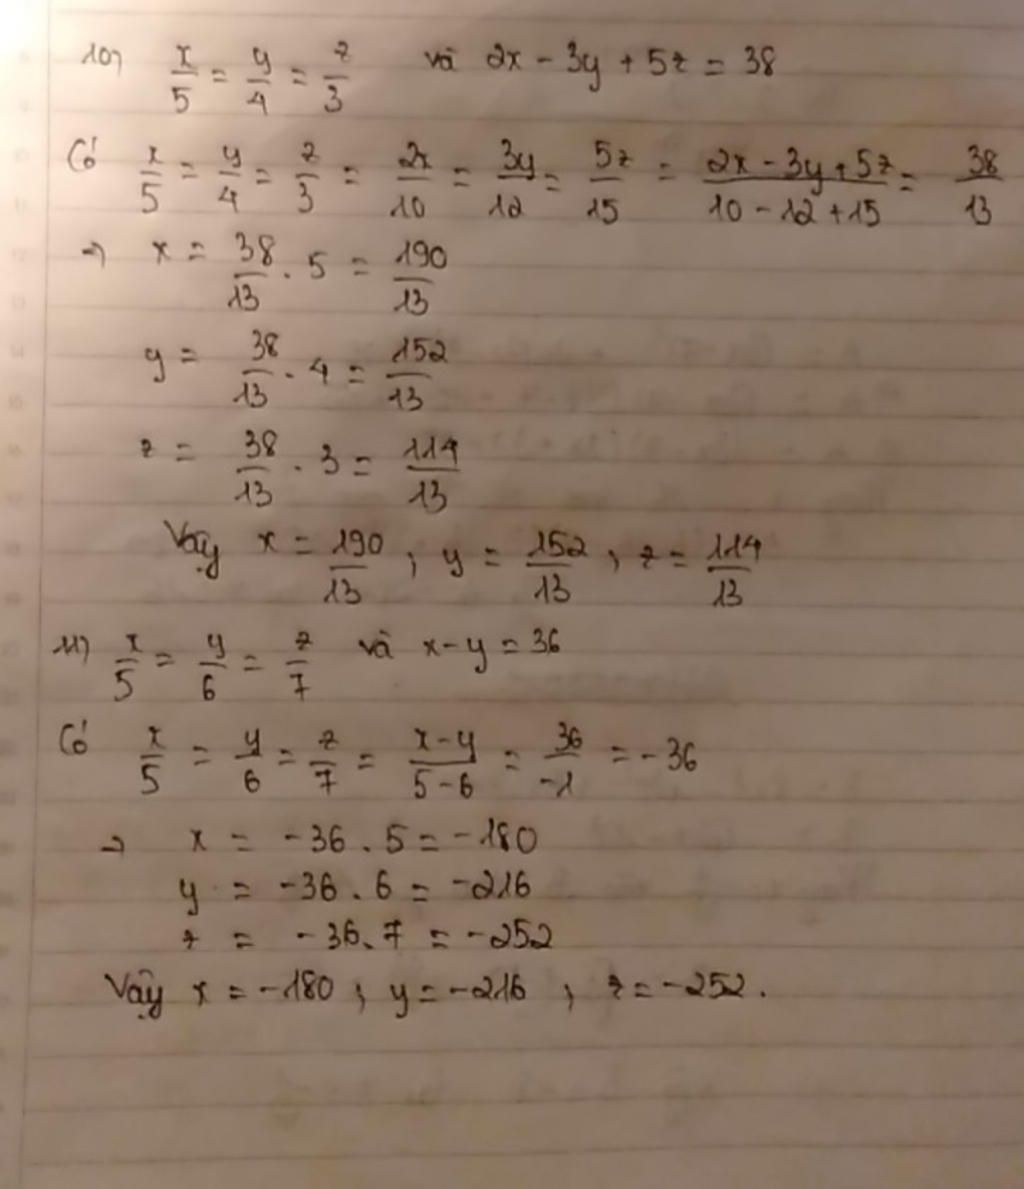 10) x/5 = y/4 = z/3 và 2x - 3y + 5z = 38
Có x/5 = y/4 = z/3 = 2x/10 = 3y/12 = 5z/15 = (2x - 3y + 5z)/(10 - 12 + 15) = 38/13
⇒ x = 38/13 . 5 = 190/13
y = 38/13 . 4 = 152/13
z = 38/13 . 3 = 114/13
Vậy x = 190/13 , y = 152/13 , z = 114/13
11) x/5 = y/6 = z/7 và x - y = 36
Có x/5 = y/6 = z/7 = (x - y)/(5 - 6) = 36/-1 = -36
⇒ x = -36 . 5 = -180
y = -36 . 6 = -216
z = -36 . 7 = -252
Vậy x = -180 , y = -216 , z = -252.